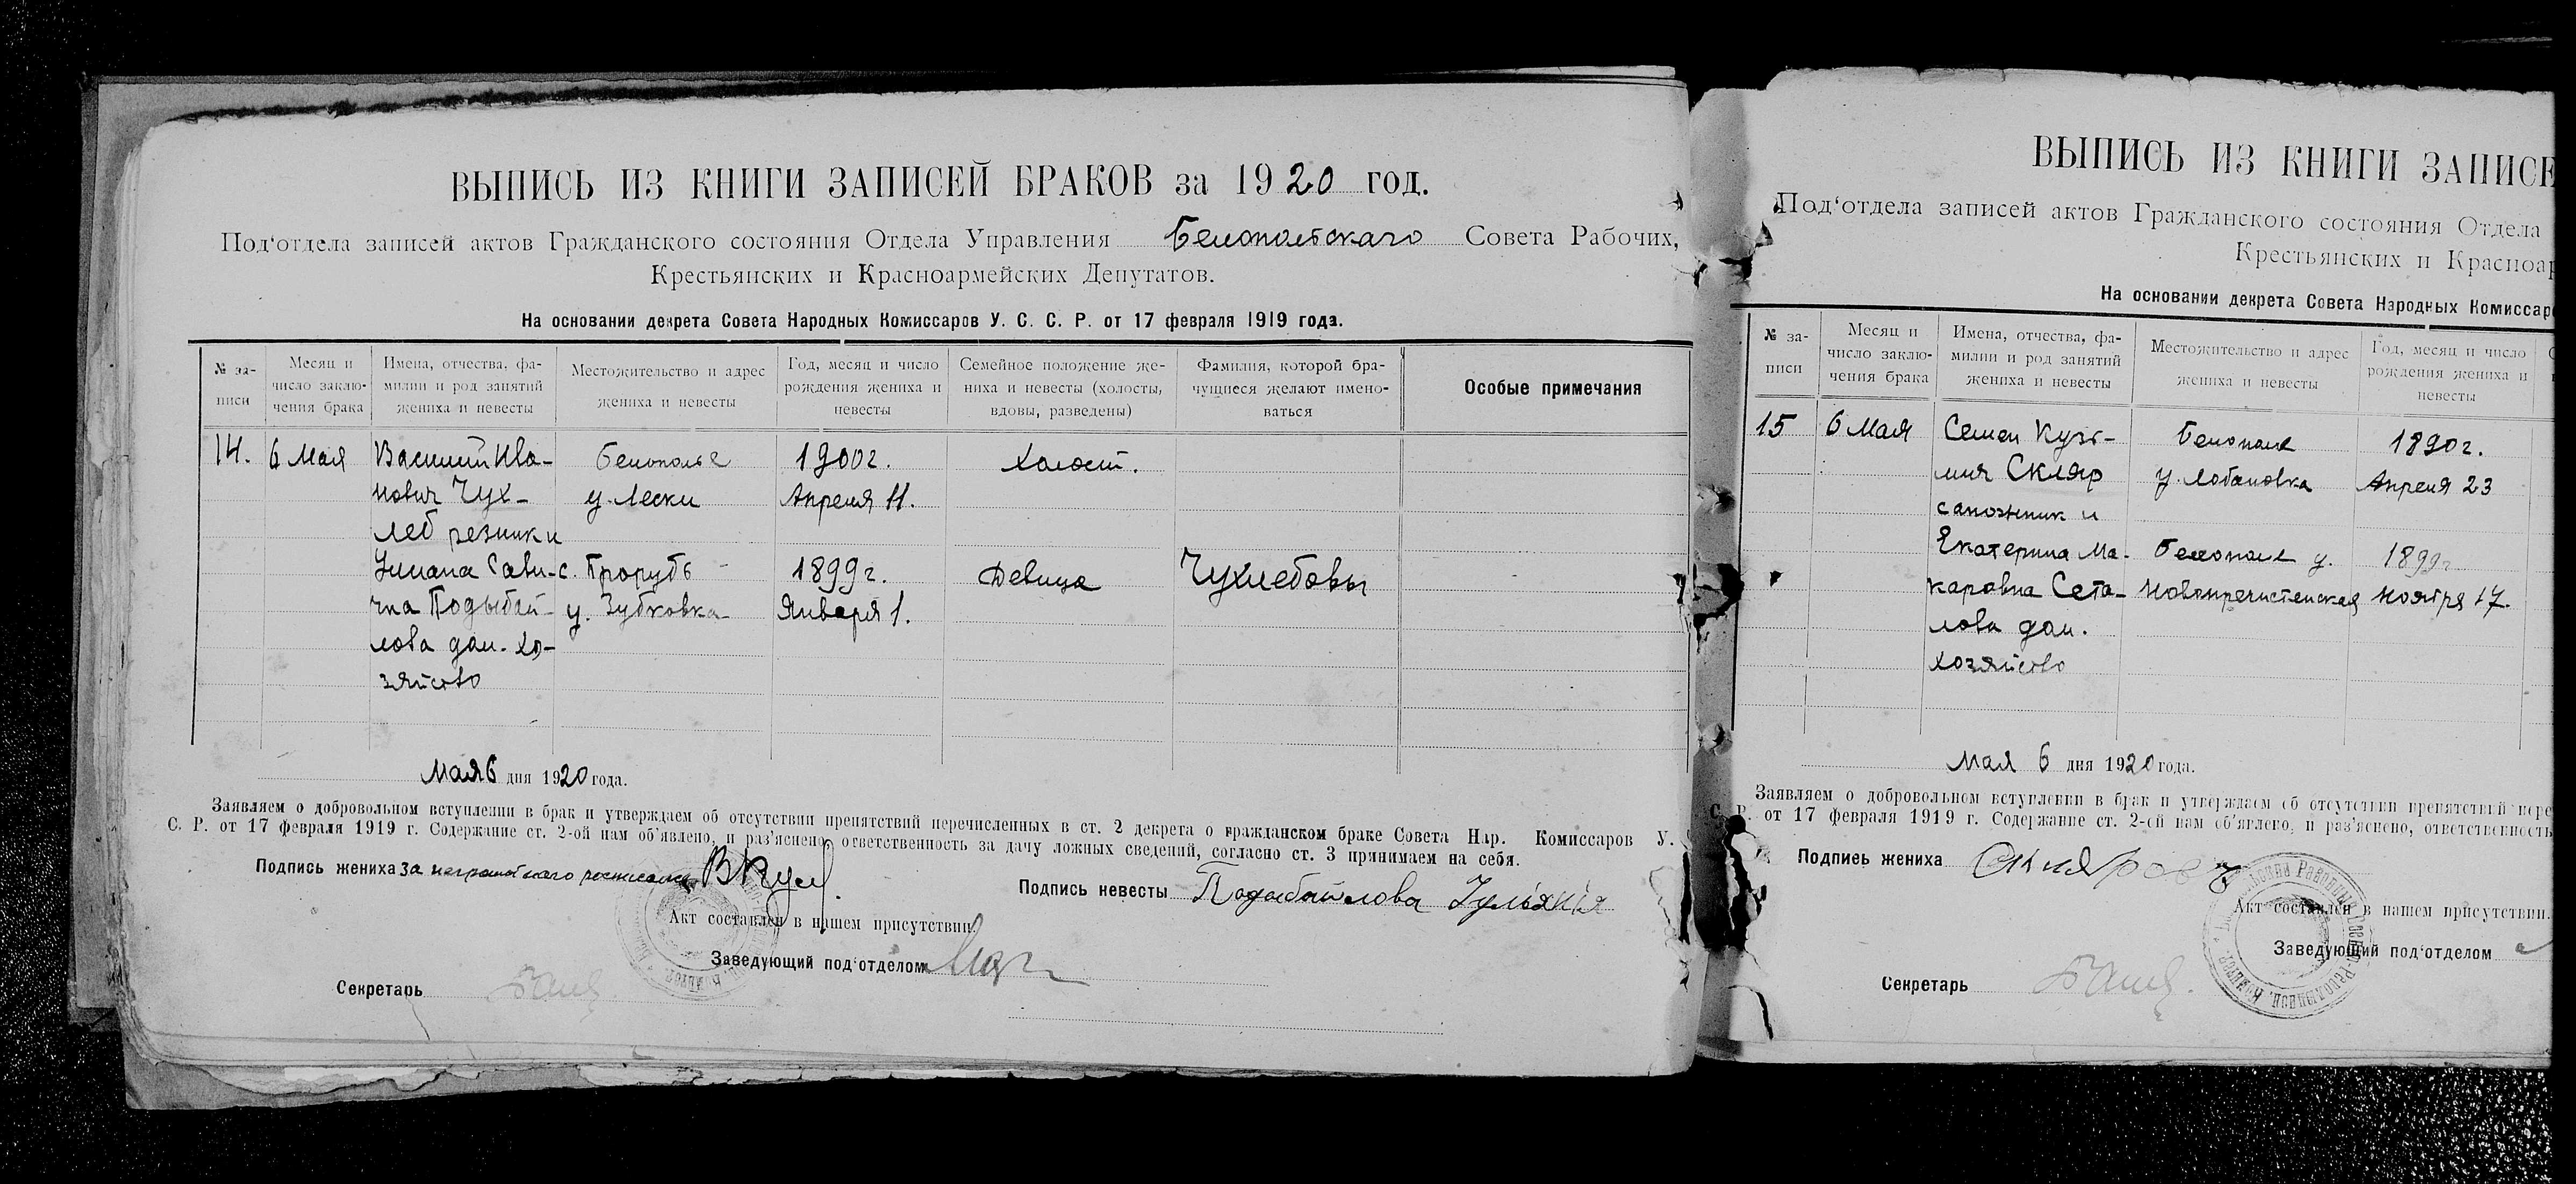 ВЫПИСЬ ИЗ КНИГИ ЗАПИСЕЙ БРАКОВ за 1920 год.
Под'отдела записей актов Гражданского состояния Отдела Управления Белопольскаго Совета Рабочих,
Крестьянских и Красноармейских Депутатов.
На основании декрета Совета Народных Комиссаров У. С. С. Р. от 17 февраля 1919 года.
№ за-
писи
Месяц и
число заклю-
чения брака
Имена, отчества, фа-
милии и род занятий
жениха и невесты
Местожительство и адрес
жениха и невесты
Год, месяц и число
рождения жениха и
невесты
Семейное положение же-
ниха и невесты (холосты,
вдовы, разведены)
Фамилия, которой бра-
чущиеся желают имено-
ваться
Особые примечания
14.
6 Мая
Василий Ива-
нович Чух-
леб резник и
Улиана Сави-
чна Подыбай-
лова дом. хо-
зяйство
Белополье
у. Лески
с. Прорубь
у. Зубковка
1900 г.
Апреля 11.
1899 г.
Января 1.
Холост.
Девица
Чухлебовы
Мая 6 дня 1920 года.
Заявляем о добровольном вступлении в брак и утверждаем об отсутствии препятствий перечисленных в ст. 2 декрета о гражданском браке Совета Нар. Комиссаров У.
С. Р. от 17 февраля 1919 г. Содержание ст. 2-ой нам об'явлено, и раз'яснено, ответственность за дачу ложных сведений, согласно ст. 3 принимаем на себя.
Подпись жениха За неграмотнаго
Подпись невесты Подыбайлова
Акт составлен в нашем присутствии.
Заведующий под'отделом
Секретарь
ВЫПИСЬ ИЗ КНИГИ ЗАПИСЕ
Под'отдела записей актов Гражданского состояния Отдела
Крестьянских и Красноар
На основании декрета Совета Народных Комиссар
№ за-
писи
Месяц и
число заклю-
чения брака
Имена, отчества, фа-
милии и род занятий
жениха и невесты
Местожительство и адрес
жениха и невесты
Год, месяц и число
рождения жениха и
невесты
15
6 Мая
Семен Кузь-
мич Скляр
сапожник и
Екатерина Ма-
каровна Сета-
лова дом.
хозяйство
Белополье
у. Лобановка
Белополье у.
Новопречистенская
1890 г.
Апреля 23
1899 г
Ноября 17.
Мая 6 дня 1920 года.
Заявляем о добровольном вступлении в брак и утверждаем об отсутствии препятствий пере
С. Р. от 17 февраля 1919 г. Содержание ст. 2-ой нам об'явлено, и раз'яснено, ответственность
Подпись жениха
Акт составлен в нашем присутствии.
Заведующий под'отделом
Секретарь